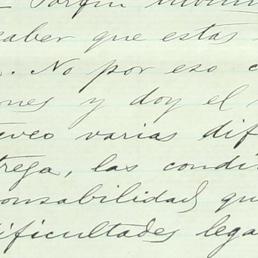 Porfin
saber que estas
. No por eso c
ones y doy el
veo varias dif
trega, las condi
onsabilidad, qu
dificultades lega